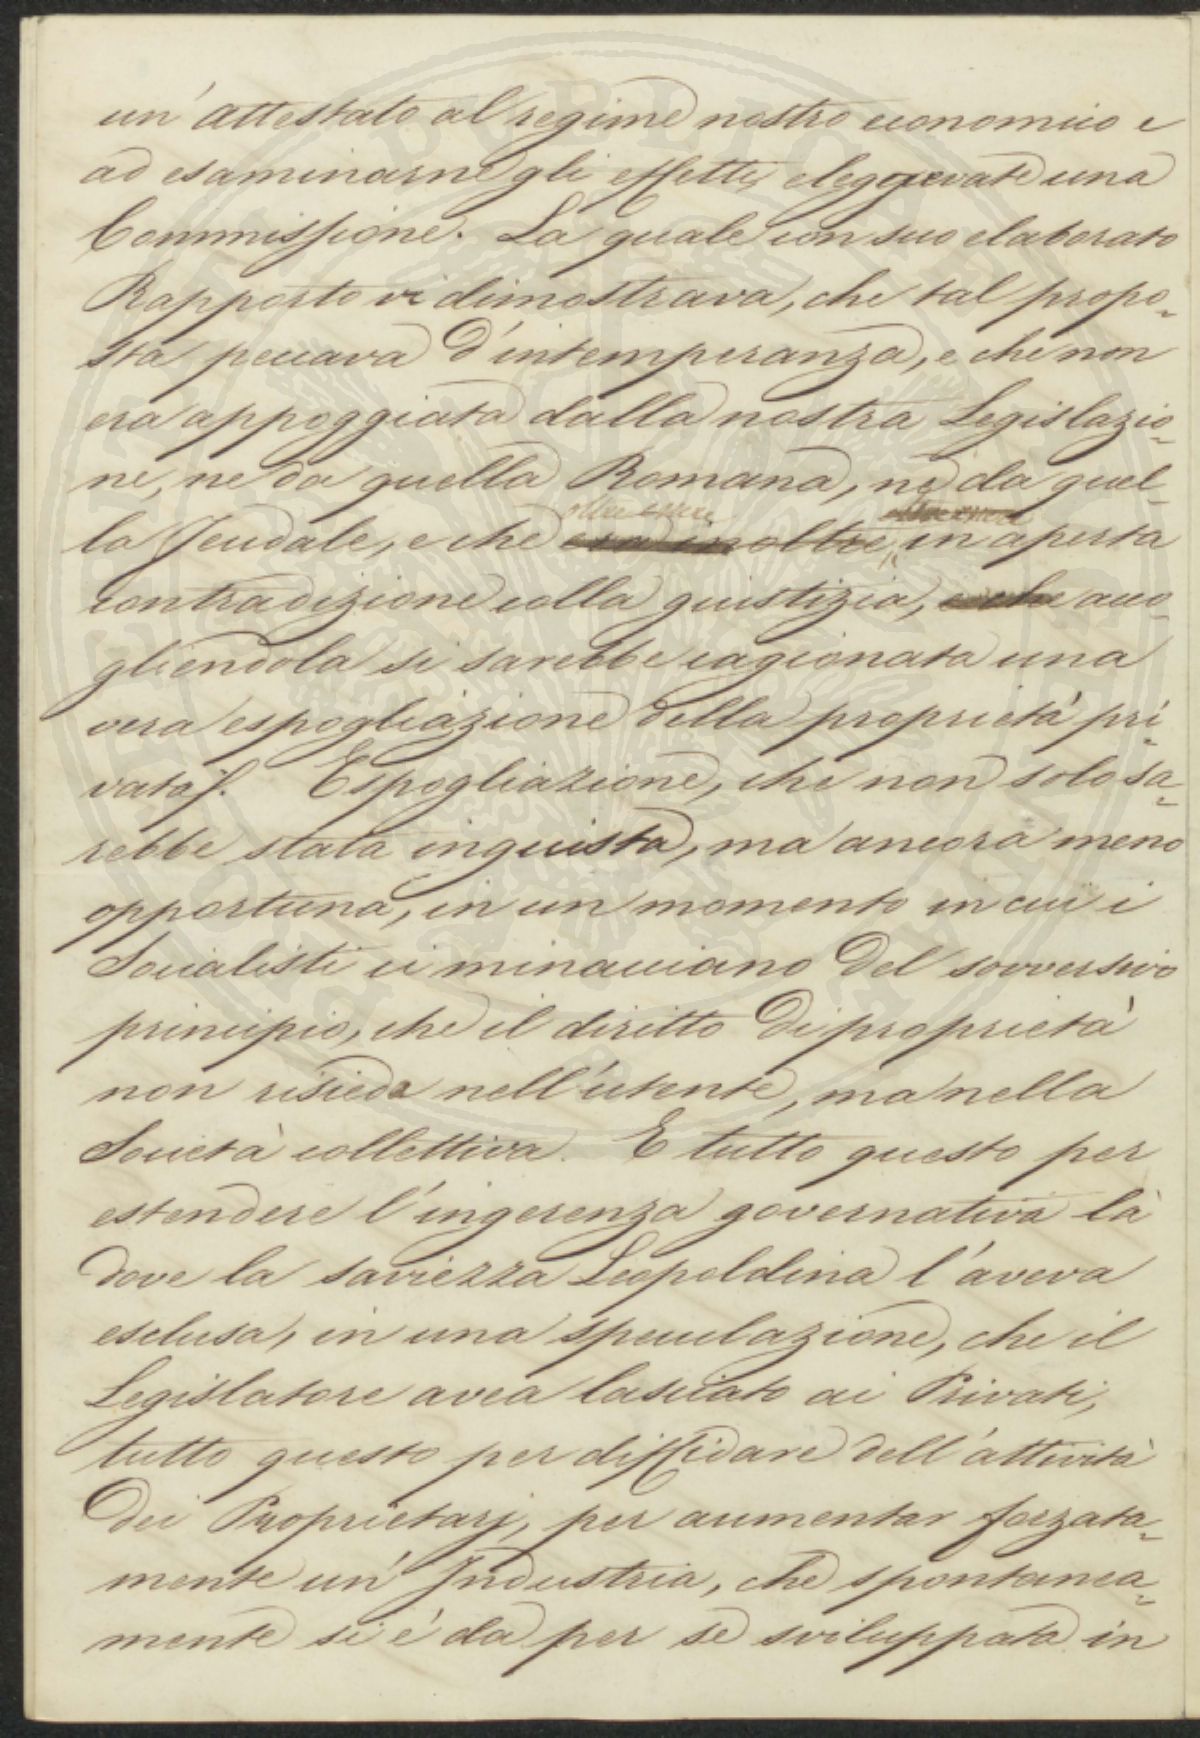 un' attestato al regime nostro economico e
ad esaminarne gli effetti, eleggevate una
Commissione. La quale con suo elaborato
Rapporto vi dimostrava, che tal propo=
sta peccava d'intemperanza, e che non
era appoggiata dalla nostra Legislazio=
ne, ne da quella Romana, ne da quel=
la Feudale, e che oltre essere in aperta
contradizione colla giustizia, acco=
gliendola si sarebbe cagionata una
vera espogliazione della proprietà pri=
vata. Espogliazione, che non solo sa=
rebbe stata ingiusta, ma ancora meno
opportuna, in un momento in cui i
Socialisti ci minacciano del sovversivo
principio, che il diritto di proprietà
non risieda nell'utente, ma nella
Società collettiva. E tutto questo per
estendere l'ingerenza governativa là
dove la saviezza Leopoldina l'aveva
esclusa, in una speculazione, che il
Legislatore avea lasciato ai Privati,
tutto questo per diffidare dell'attività
dei Proprietarj, per aumentar forzata=
mente un' Industria, che spontanea=
mente si è da per se sviluppata in